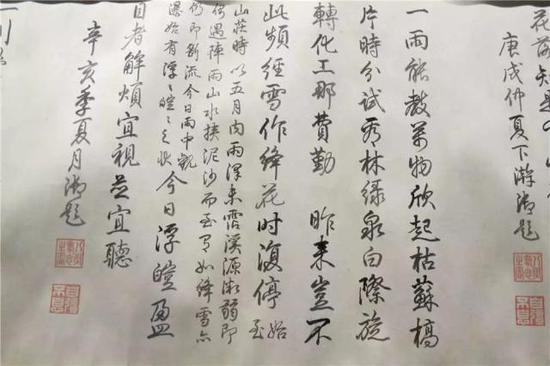 庚戌仲夏下澣御題
一雨能教萬物欣起枯蘇槁
片時分試看林綠泉白際旋
轉化工那費勤 昨來豈不
此頻經雪作絳花時復停 至始
山莊時以五月內雨澤未霑溪源微弱即
偶遇陣雨山水挾泥沙而至
如絳雪
今日雨中觀
瀑始有浮之狀 今日浮皚盈
目者解煩宜視並宜聽
辛亥季夏月御題